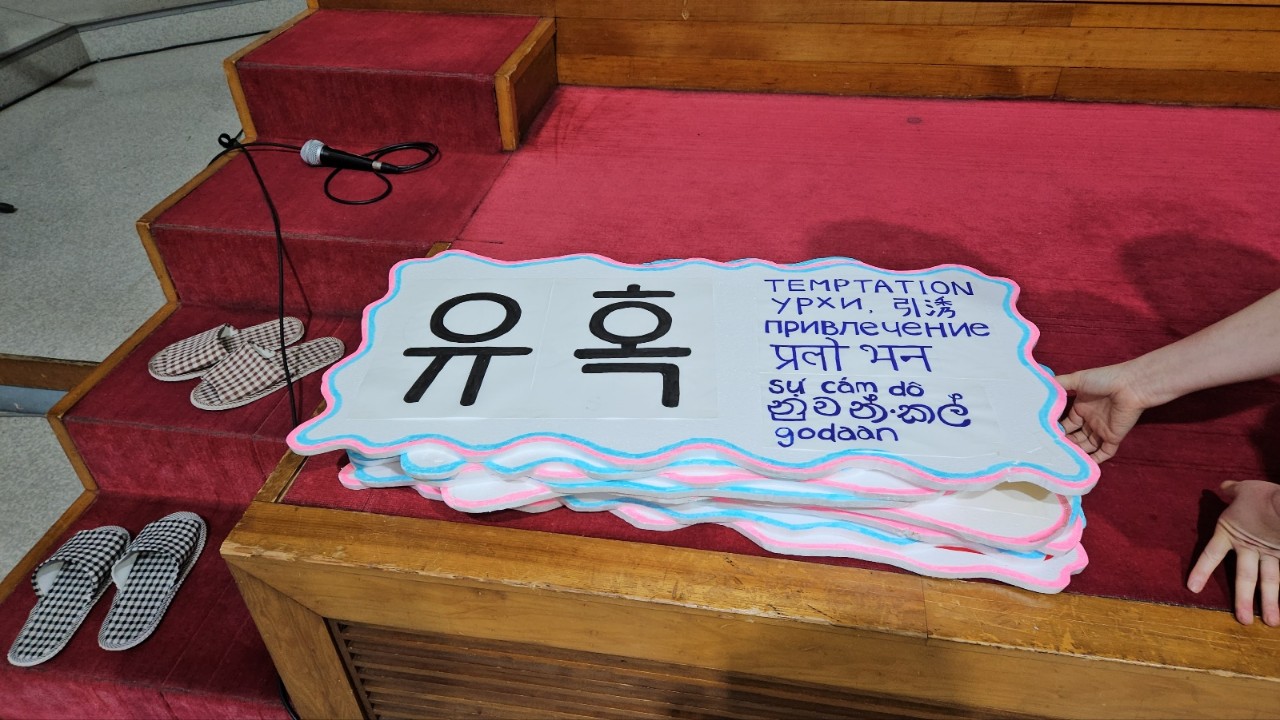 유혹
TEMPTATION
УРХИ, 引诱
привлечение
प्रलो भन
sự cám dỗ
නුවන්.කල්
godaan